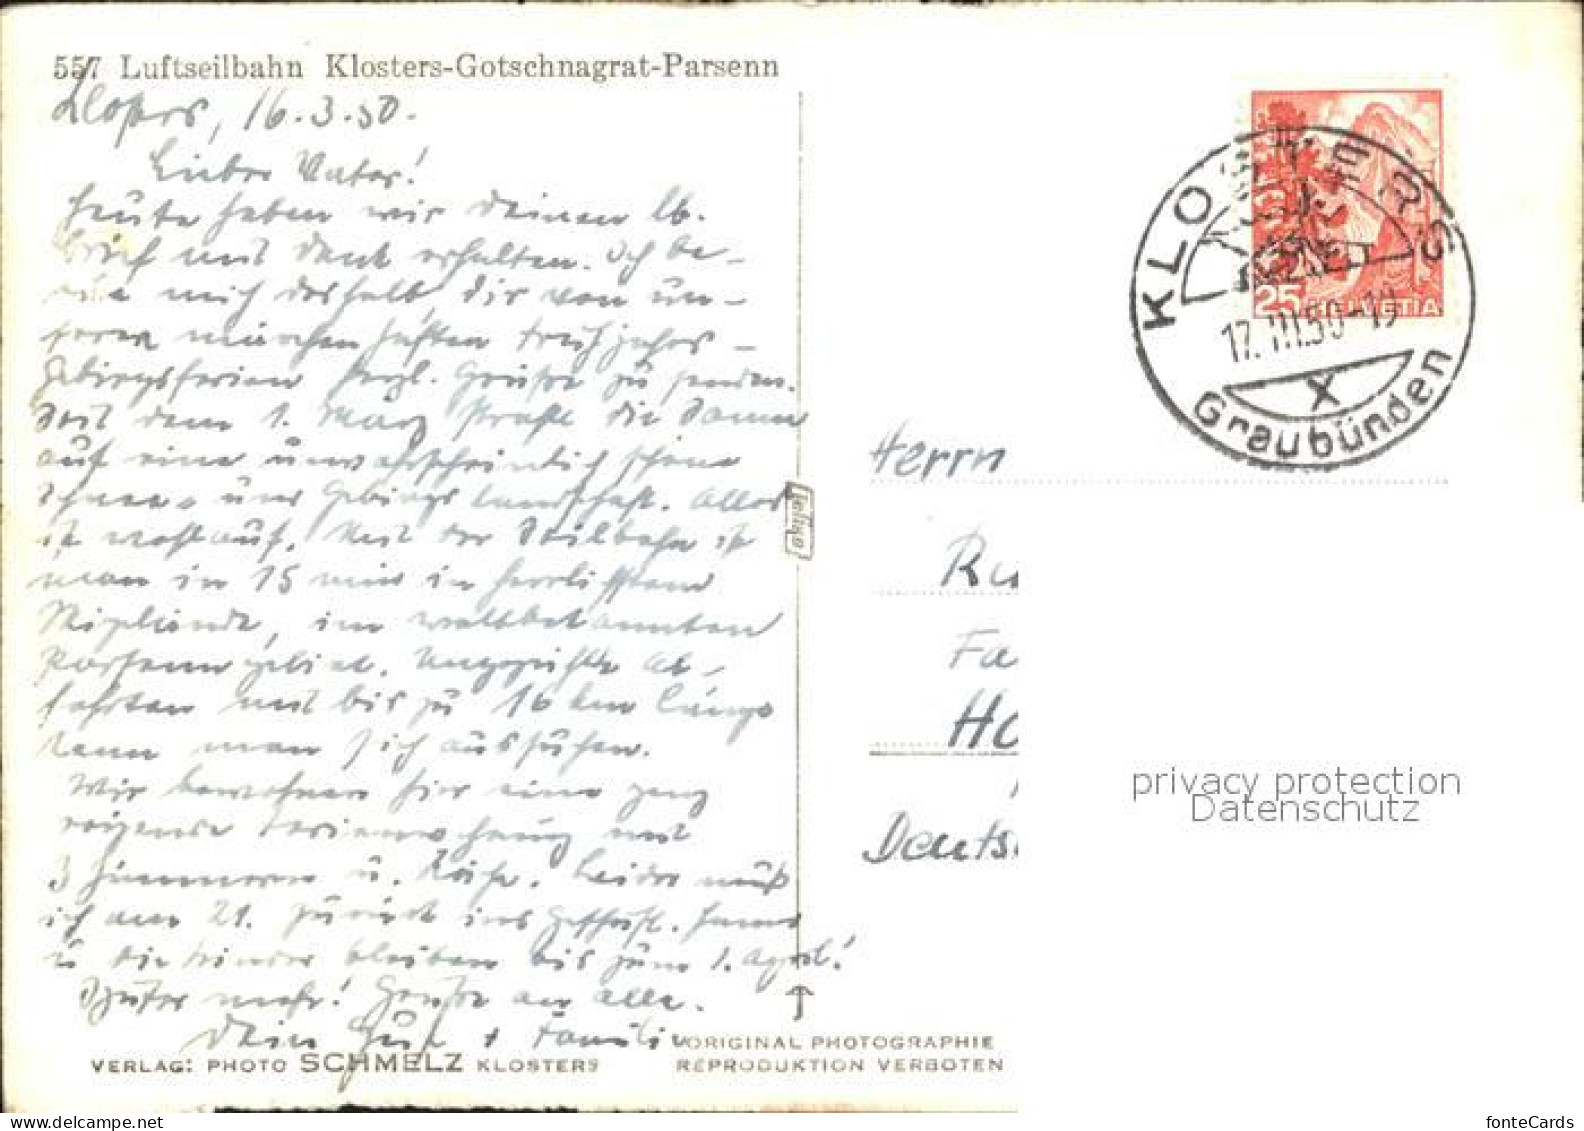 557 Luftseilbahn Klosters-Gotschnagrat-Parsenn
Klosters, 16.3.50.
Lieber Vater!
Heute haben wir Deinen lb.
Brief mit Dank erhalten. Ich be-
eile mich deshalb, Dir von un-
seren märchenhaften Frühjahrs-
Gebirgsferien herzl. Grüße zu senden.
Seit dem 1. März strahlt die Sonne
auf eine unwahrscheinlich schöne
Schnee- und Gebirgslandschaft. Alles
ist wohlauf. Mit der Seilbahn ist
man in 15 min in herrlichstem
Skigelände, im weltbekannten
Parsenngebiet. Ungezählte Ab-
fahrten mit bis zu 16 km Länge
kann man sich aussuchen.
Wir bewohnen hier eine ganz
reizende Ferienwohnung mit
3 Zimmern u. Küche. Leider muß
ich am 21. zurück ins Geschäft.
u die Kinder bleiben bis zum 1. April!
Später mehr! Grüße an alle.
Dein + Familie
VERLAG: PHOTO SCHMELZ KLOSTERS
ORIGINAL PHOTOGRAPHIE
REPRODUKTION VERBOTEN
25 HELVETIA
KLOSTERS
17.III.50-19
X
Graubünden
Herrn
Ru
Fa
Ha
Deuts
privacy protection
Datenschutz
fonteCards